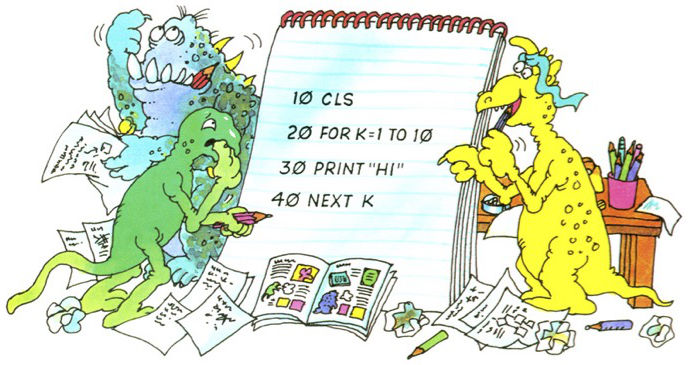 10 CLS
20 FOR K=1 TO 10
30 PRINT "HI"
40 NEXT K